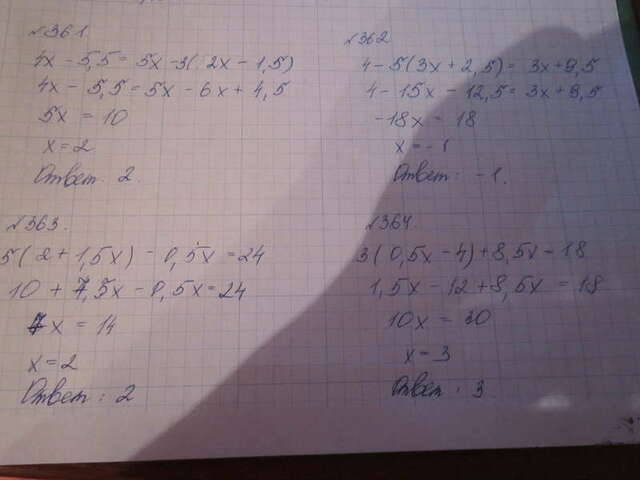 №361
4x - 5,5 = 5x - 3(2x - 1,5)
4x - 5,5 = 5x - 6x + 4,5
5x = 10
x = 2
Ответ: 2.
№362
4 - 5(3x + 2,5) = 3x + 9,5
4 - 15x - 12,5 = 3x + 9,5
-18x = 18
x = -1
Ответ: -1.
№363.
5(2 + 1,5x) - 0,5x = 24
10 + 7,5x - 0,5x = 24
7x = 14
x = 2
Ответ: 2
№364.
3(0,5x - 4) + 8,5x = 18
1,5x - 12 + 8,5x = 18
10x = 30
x = 3
Ответ: 3.